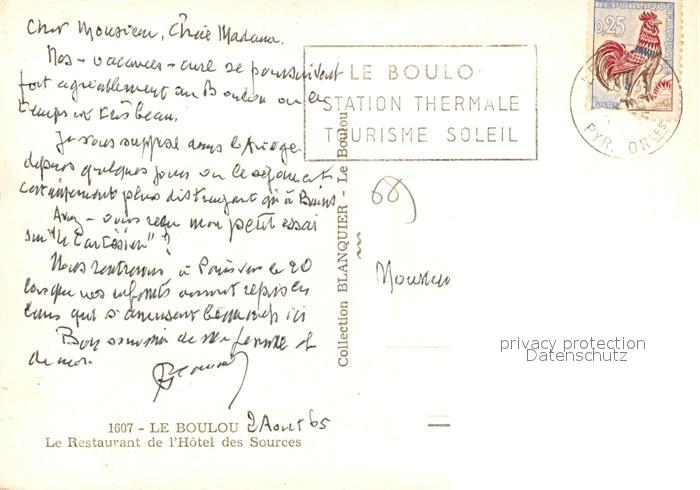 Cher Monsieur, Chère Madame.
Nos - vacances - cure se poursuivent
fort agréablement au Boulou où le
temps est très beau.
Je vous suppose dans l'Ariège
depuis quelques jours où le séjour est
certainement plus distrayant qu'à Bains
Avez - vous reçu mon petit essai
sur "le Cartésien" ?
Nous rentrerons à Paris vers le 20
lorsque nos enfants auront repris
qui s'amusent beaucoup ici
Bon souvenir de ma femme et
de moi.
1607 - LE BOULOU 2 Août 65
Le Restaurant de l'Hôtel des Sources
Collection BLANQUIER - Le Boulou
LE BOULO
STATION THERMALE
TOURISME SOLEIL
0,25
PYR. ORLES
68
Monsieur
privacy protection
Datenschutz